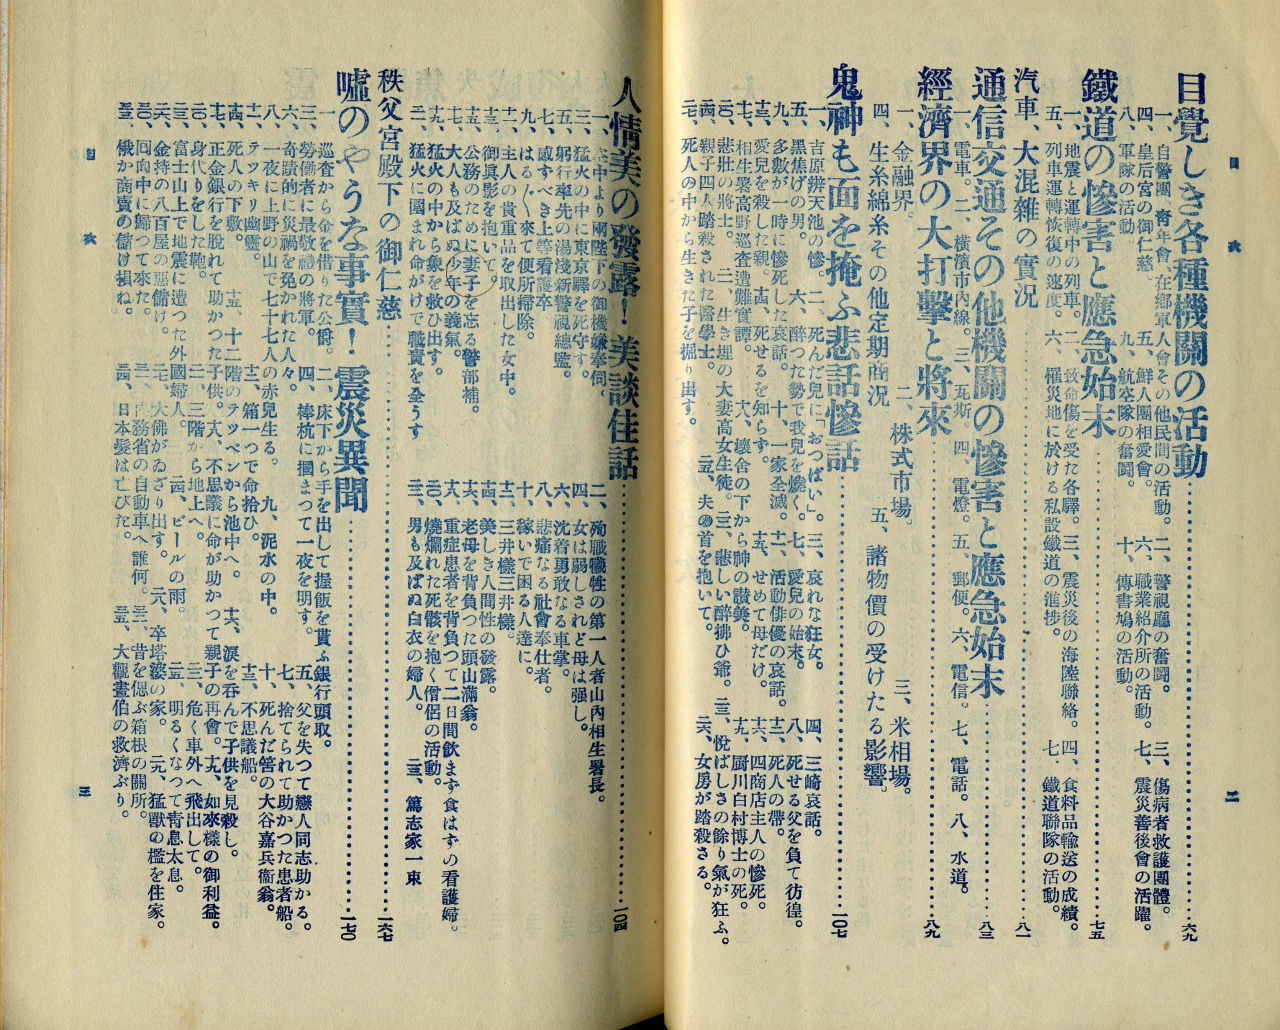 目次
二
目覺しき各種機關の活動……六九
一、自警團、靑年會、在鄕軍人會その他民間の活動。二、警視廳の奮鬪。三、傷病者救護團體。
四、皇后宮の御仁慈。五、鮮人團相愛會。六、職業紹介所の活動。七、震災善後會の活躍。
八、軍隊の活動。九、航空隊の奮鬪。十、傳書鳩の活動。
鐵道の慘害と應急始末……七五
一、地震と運轉中の列車。二、致命傷を受た各驛。三、震災後の海陸聯絡。四、食料品輸送の成績。
五、列車運轉恢復の速度。六、罹災地に於ける私設鐵道の進捗。七、鐵道聯隊の活動。
汽車、大混雜の實況……八一
通信交通その他機關の慘害と應急始末……八三
一、電車。二、橫濱市內線。三、瓦斯。四、電燈。五、郵便。六、電信。七、電話。八、水道。
經濟界の大打擊と將來……八九
一、金融界。二、株式市場。三、米相場。
四、生糸綿糸その他定期商況　五、諸物價の受けたる影響。
鬼神も面を掩ふ悲話慘話……一〇七
一、吉原辨天池の慘。二、死んだ兒に「おつぱい」。三、哀れな狂女。四、三崎哀話。
五、黑焦げの男。六、醉つた勢で我兒を燒く。七、愛兒の始末。八、死せる父を負て彷徨。
九、多數が一時に慘死した哀話。十、一家全滅。十一、活動俳優の哀話。十二、死人の帶。
十三、愛兒を殺した親。十四、死せるを知らず。十五、せめて母だけ。十六、四商店主人の慘死。
十七、相生署高野巡査遭難實譚。十八、壞舍の下から神の讃美。十九、厨川白村博士の死。
二〇、悲壯の將士。二一、生き埋の大妻高女生徒。二二、悲しい醉拂ひ爺。二三、悅ばしさの餘り氣が狂ふ。
二四、親子四人踏殺された醫學士。二五、夫の首を抱いて。二六、女房が踏殺さる。
二七、死人の中から生きた子を掘り出す。
人情美の發露！美談佳話……一〇四
一、空中より兩陛下の御機嫌奉伺。二、殉職犧牲の第一人者山內相生署長。
三、猛火の中に東京驛を死守す。四、女は弱しされど母は强し。
五、躬行率先の湯淺新警視總監。六、沈着勇敢なる車掌。
七、感ずべき上等看護卒。八、悲痛なる社會奉仕者。
九、はる〲來て便所掃除。十、稼いで困る人達に。
十一、主人の貴重品を取出した女中。十二、三井樣三井樣。
十三、御眞影を抱いて。十四、美しき人間性の發露。
十五、公務のために妻子を忘る警部補。十六、老母を背負つた頭山滿翁。
十七、大人も及ばぬ少年の義氣。十八、重症患者を背負つて二日間飮まず食はずの看護婦。
十九、猛火の中から象を救ひ出す。二〇、燒爛れた死骸を抱く僧侶の活動。
二一、猛火に圍まれ命がけで職責を全うす　二二、男も及ばぬ白衣の婦人。二三、篤志家一束
秩父宮殿下の御仁慈……一六七
噓のやうな事實！震災異聞……一七〇
一、巡査から金を借りた公爵。二、床下から手を出して握飯を貰ふ銀行頭取。
三、勞働者に最敬禮の將軍。四、棒杭に摑まつて一夜を明す。五、父を失つて戀人同志助かる。
六、奇蹟的に災禍を免かれた人々。七、捨てられて助かつた患者船。
八、一夜に上野の山で七十七人の赤兒生る。九、泥水の中。十、死んだ筈の大谷嘉兵衞翁。
十一、テッキリ幽靈。十二、箱一つで命拾ひ。十三、不思議船。
十四、死人の下敷。十五、十二階のテッペンから池中へ。十六、淚を呑んで子供を見殺し。
十七、正金銀行を脫れて助かつた子供。十八、不思議に命が助かつて親子の再會。十九、如來樣の御利益。
二〇、身代りをした鞄。二一、三階から地上へ。二二、危く車外へ飛出して。
二三、富士山上で地震に遭つた外國婦人。二四、ビールの雨。二五、明るくなつて靑息太息。
二六、金持の八百屋の惡儲け。二七、大佛がゐざり出す。二八、卒塔婆の家。二九、猛獸の檻を住家。
三〇、罔兩中に歸つて來た。三一、內務省の自動車へ誰何。三二、昔を偲ぶ箱根の關所。
三三、俄か商賣の儲け損ね。三四、日本髮は亡びた　三五、大觀畫伯の救濟ぶり。
目次
三